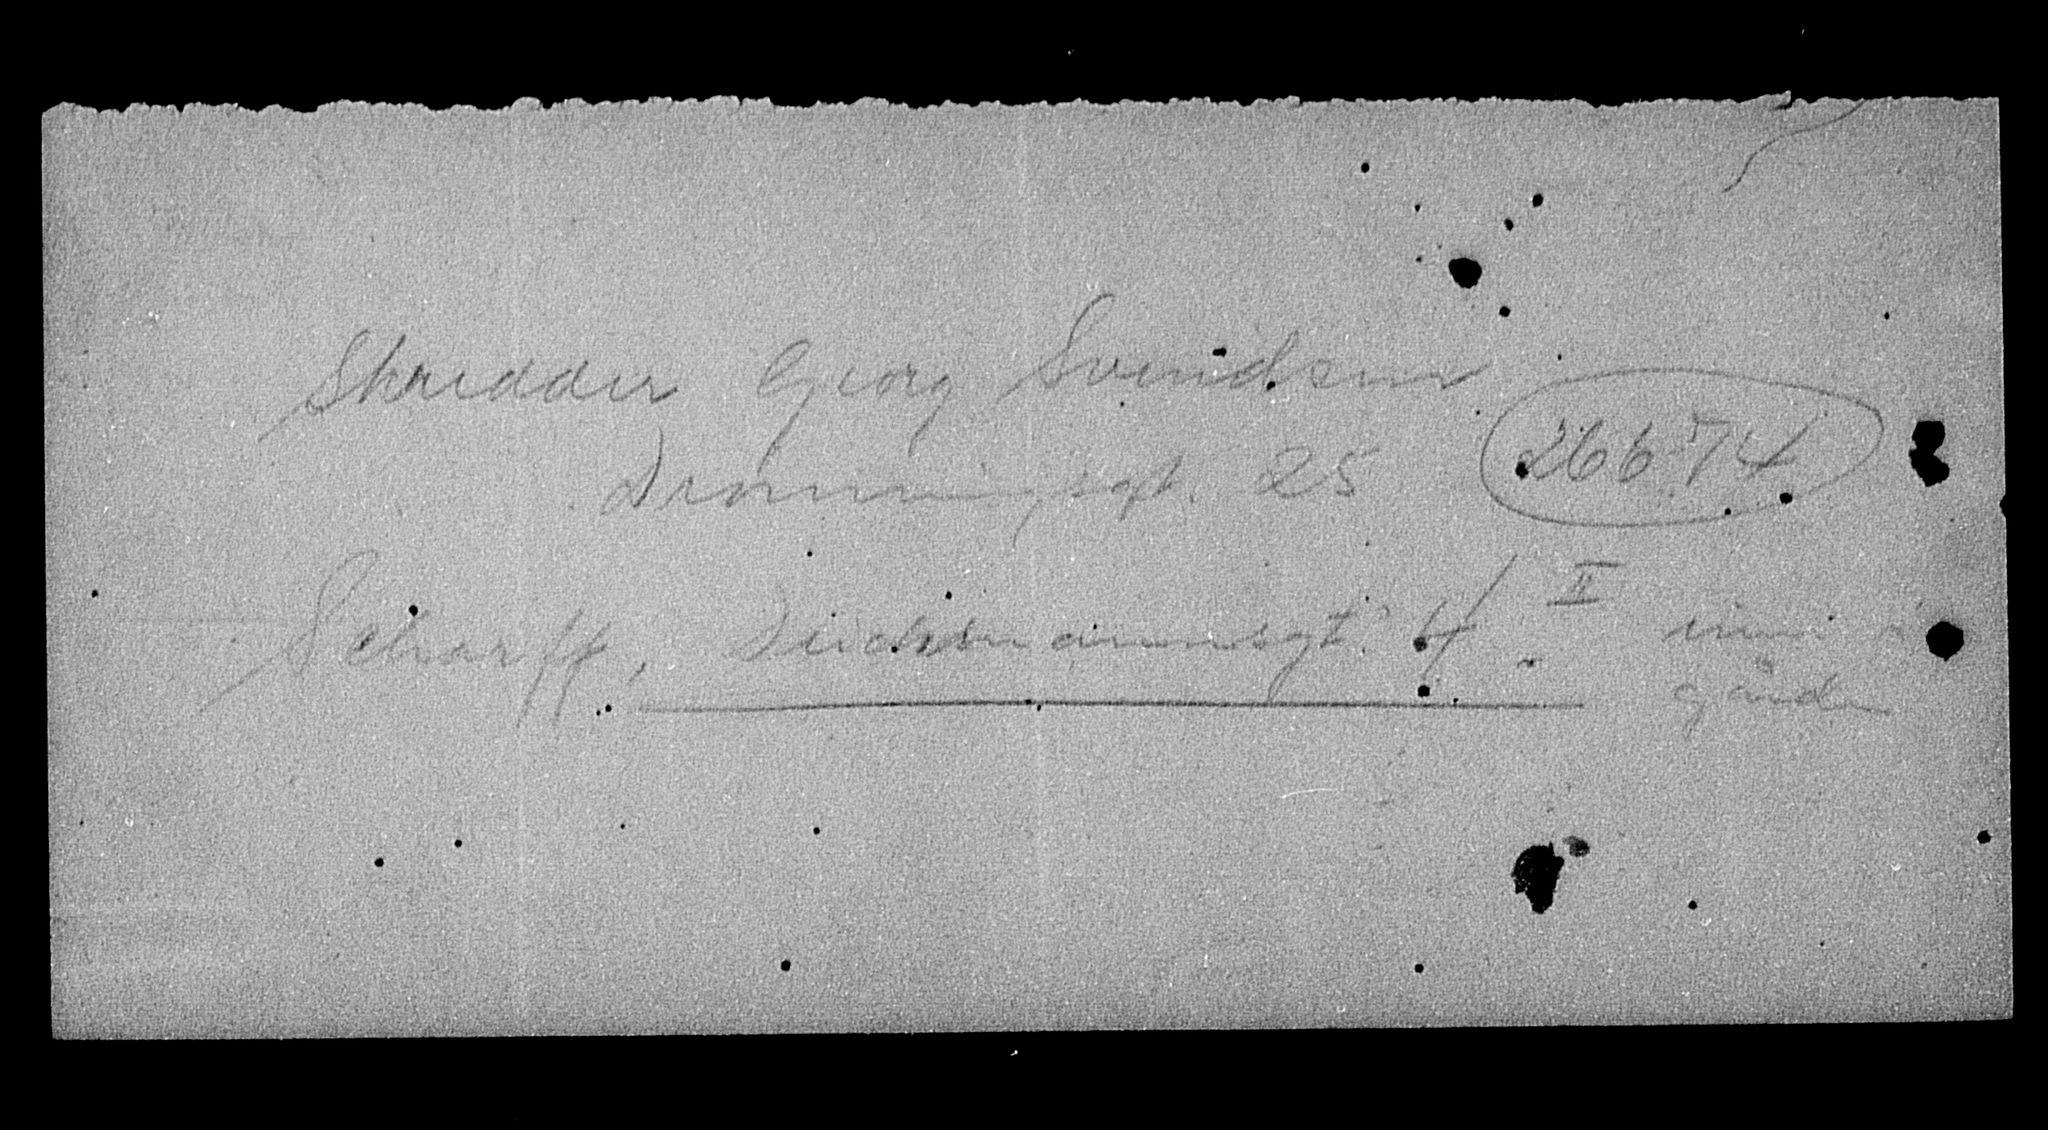 Skredder Georg Svendsen
Dronningsgt. 25 26674
Scharff, Deichmannsgt. 4 II inne i
gården